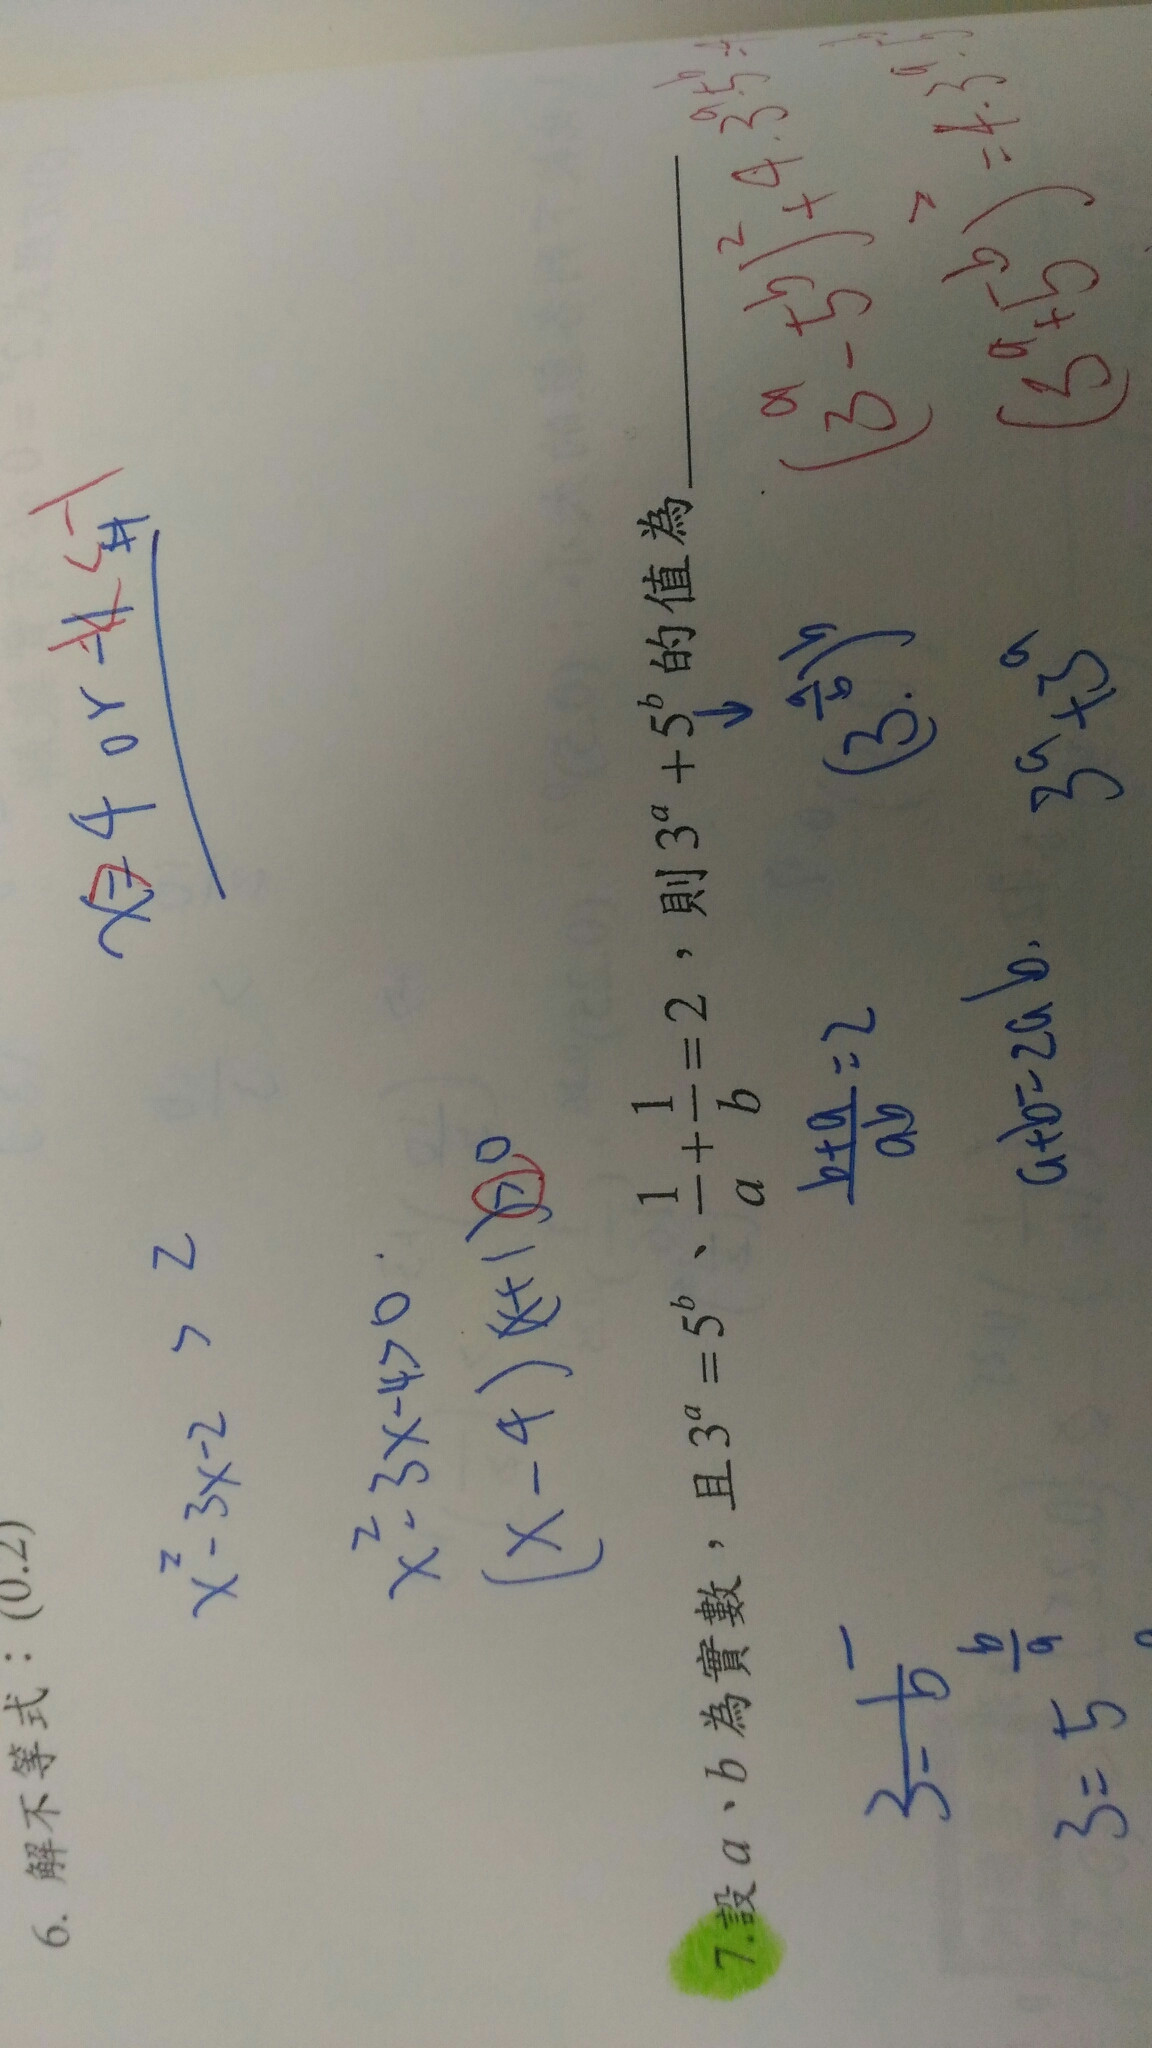 6. 解不等式：(0.2)
x² - 3x - 2 > 2
x² - 3x - 4 > 0
(x - 4)(x + 1) > 0
7. 設 a、b 為實數，且 3ᵃ = 5ᵇ、1/a + 1/b = 2，則 3ᵃ + 5ᵇ 的值為
(b+a)/ab = 2
a+b = 2ab.
3ᵃ + 3ᵃ
3 = 5^(b/a)
(3ᵃ - 5ᵇ)² + 4·3ᵃ5ᵇ =
(3ᵃ + 5ᵇ)² = 4·3ᵃ·5ᵇ